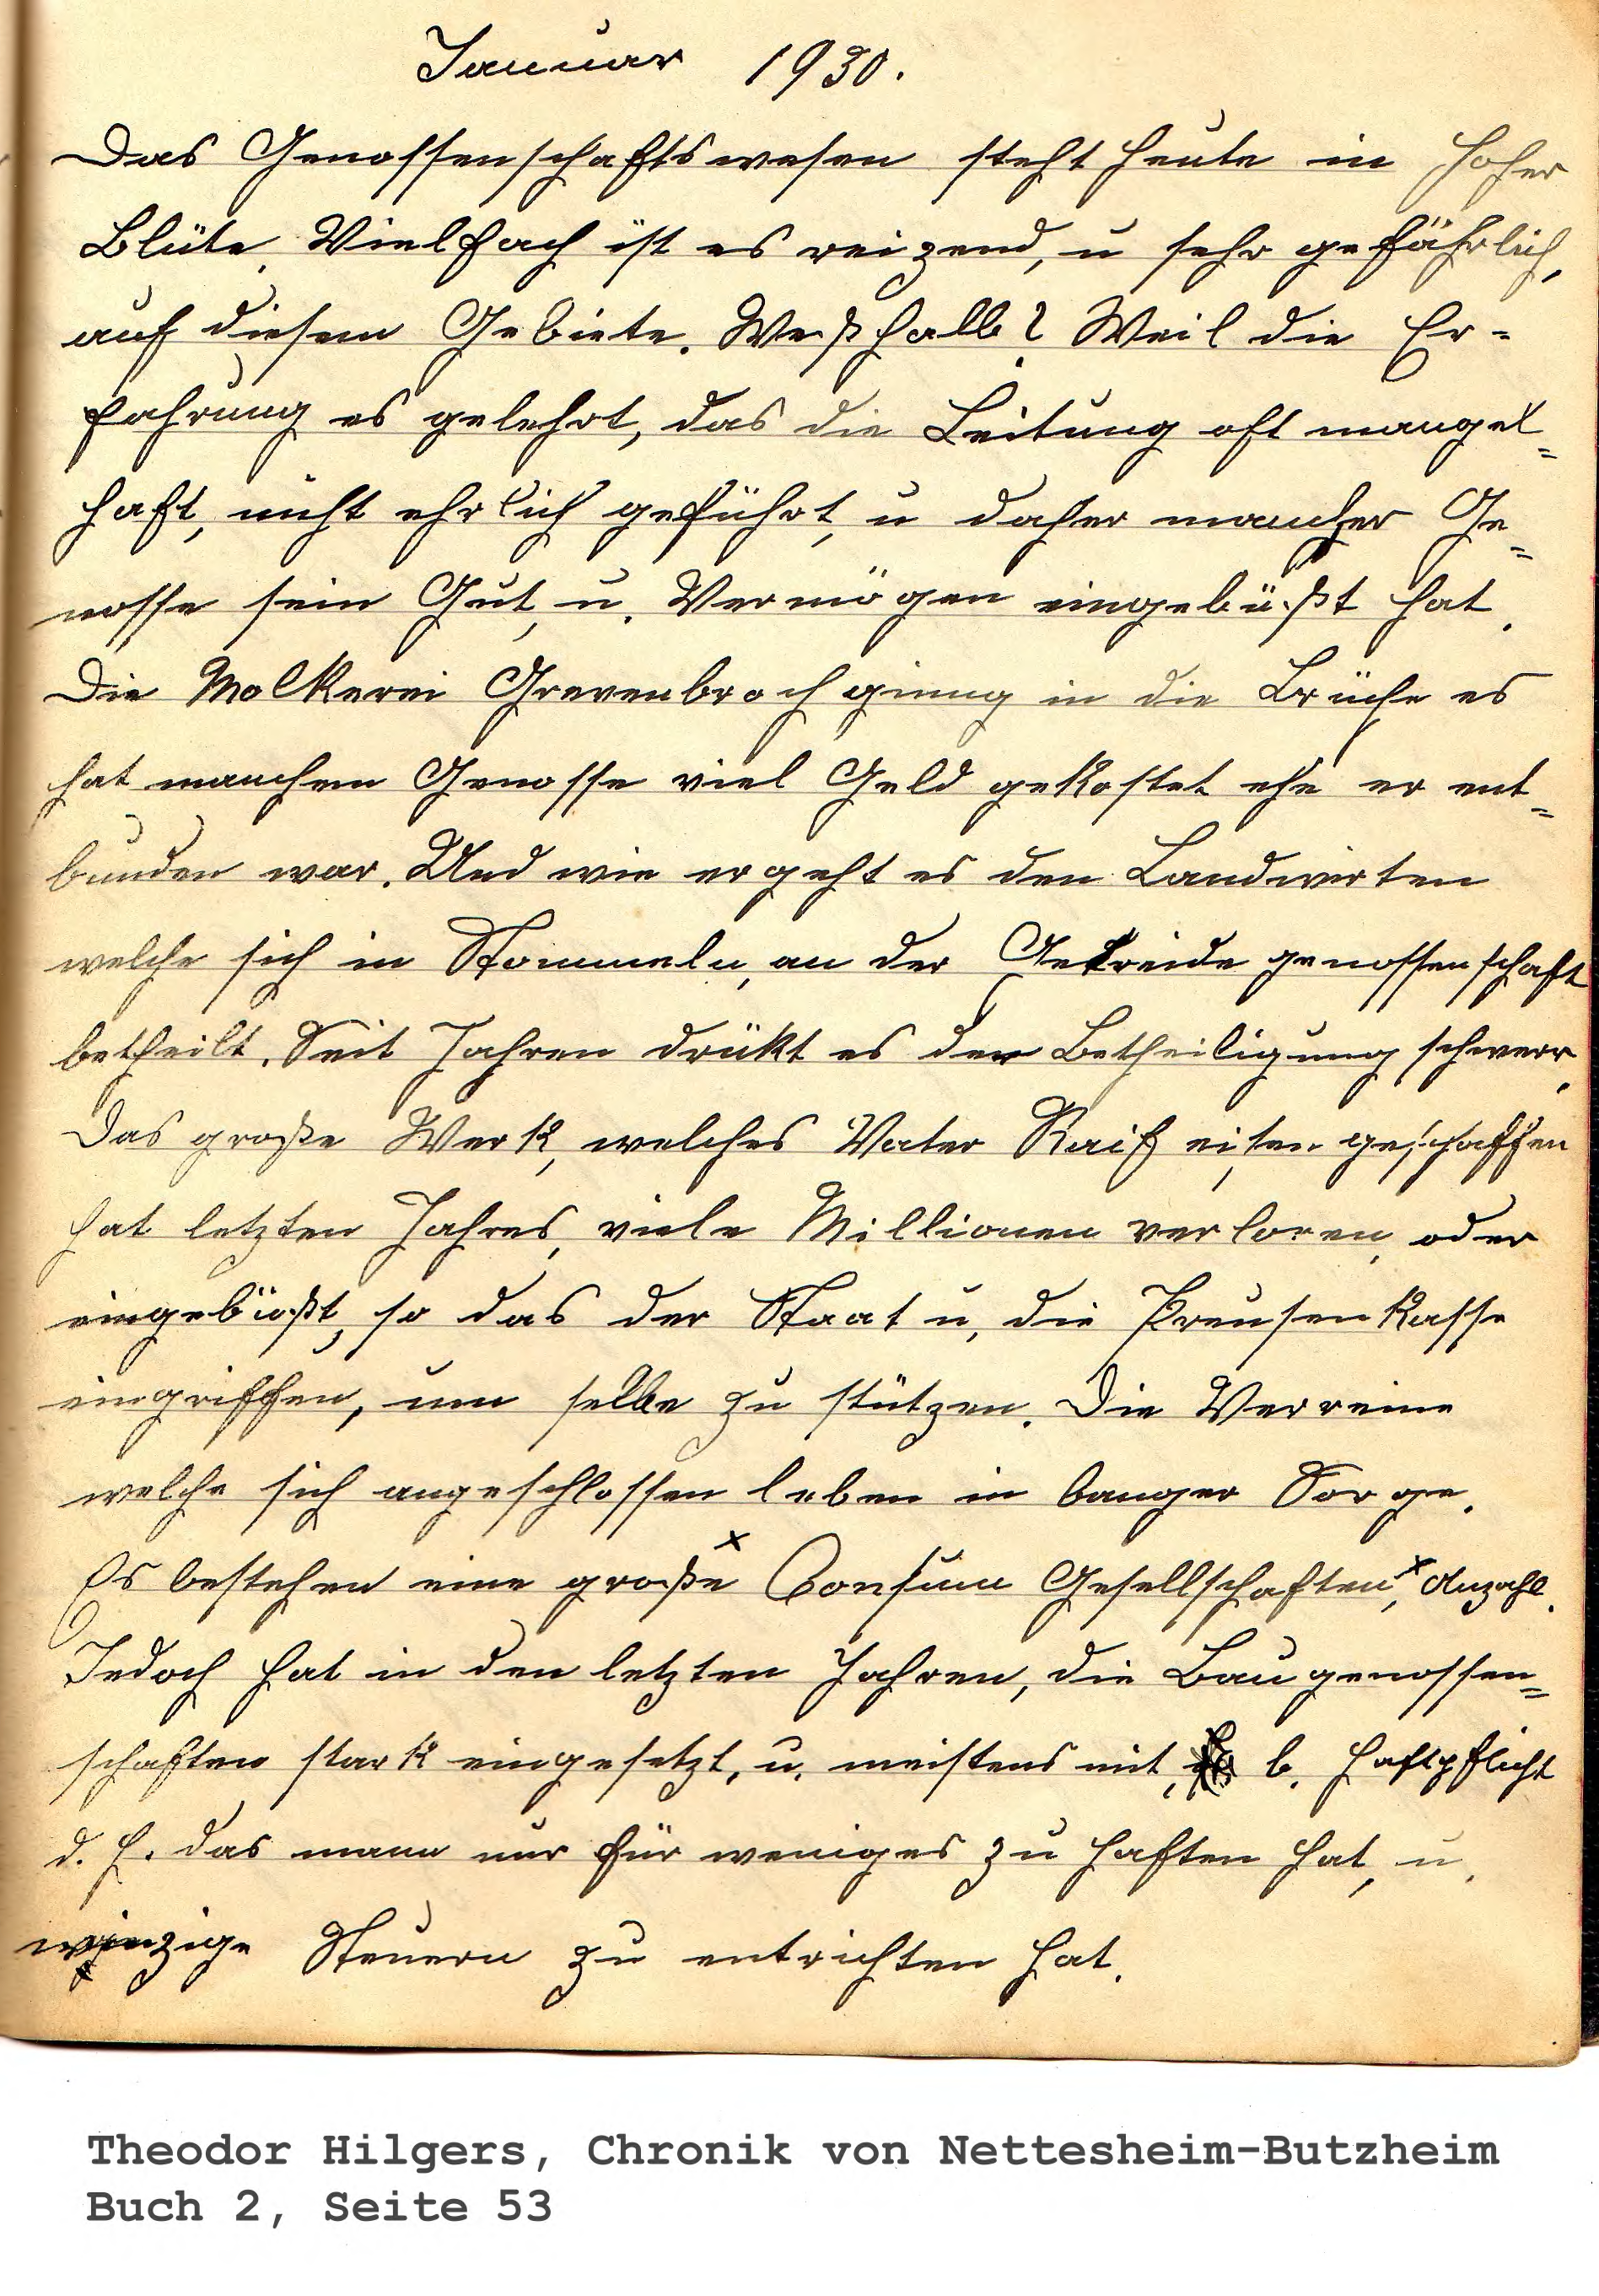 Januar 1930.
Das Genossenschaftswesen steht heute in hoher
Blüte. Vielfach ist es reizend, u sehr gefährlich,
auf diesem Gebiete. Weßhalb? Weil die Er=
fahrung es gelehrt, das die Leitung oft mangel=
haft, nicht ehrlich geführt, u daher mancher Ge=
nosse sein Gut, u. Vermögen eingebüßt hat.
Die Molkerei Grevenbroch ginng in die Brüche es
hat manchem Genosse viel Geld gekostet ehe er ent=
bunden war. Und wie ergeht es den Landwirten
welche sich in Stommeln, an der Getreidegenossenschaft
betheilt. Seit Jahren drükt es der Betheiligung schwerr.
Das große Werk, welches Vater Raifeisen geschaffen
hat letzten Jahres, viele Millionen verloren, oder
eingebüßt, so das der Staat u, die Preusenkasse
eingriffen, um selbe zu stützen. Die Verreine
welche sich angeschlossen leben in banger Sorge.
Es bestehen eine große x Consum Gesellschaften, x Anzahl.
Jedoch hat in den letzten Jahren, die Baugenossen=
schaften stark eingesetzt, u. meistens mit, b. Haftpflicht
d. h. das mann nur für weniges zu haften hat, u.
winzige Steuern zu entrichten hat.
Theodor Hilgers, Chronik von Nettesheim-Butzheim
Buch 2, Seite 53